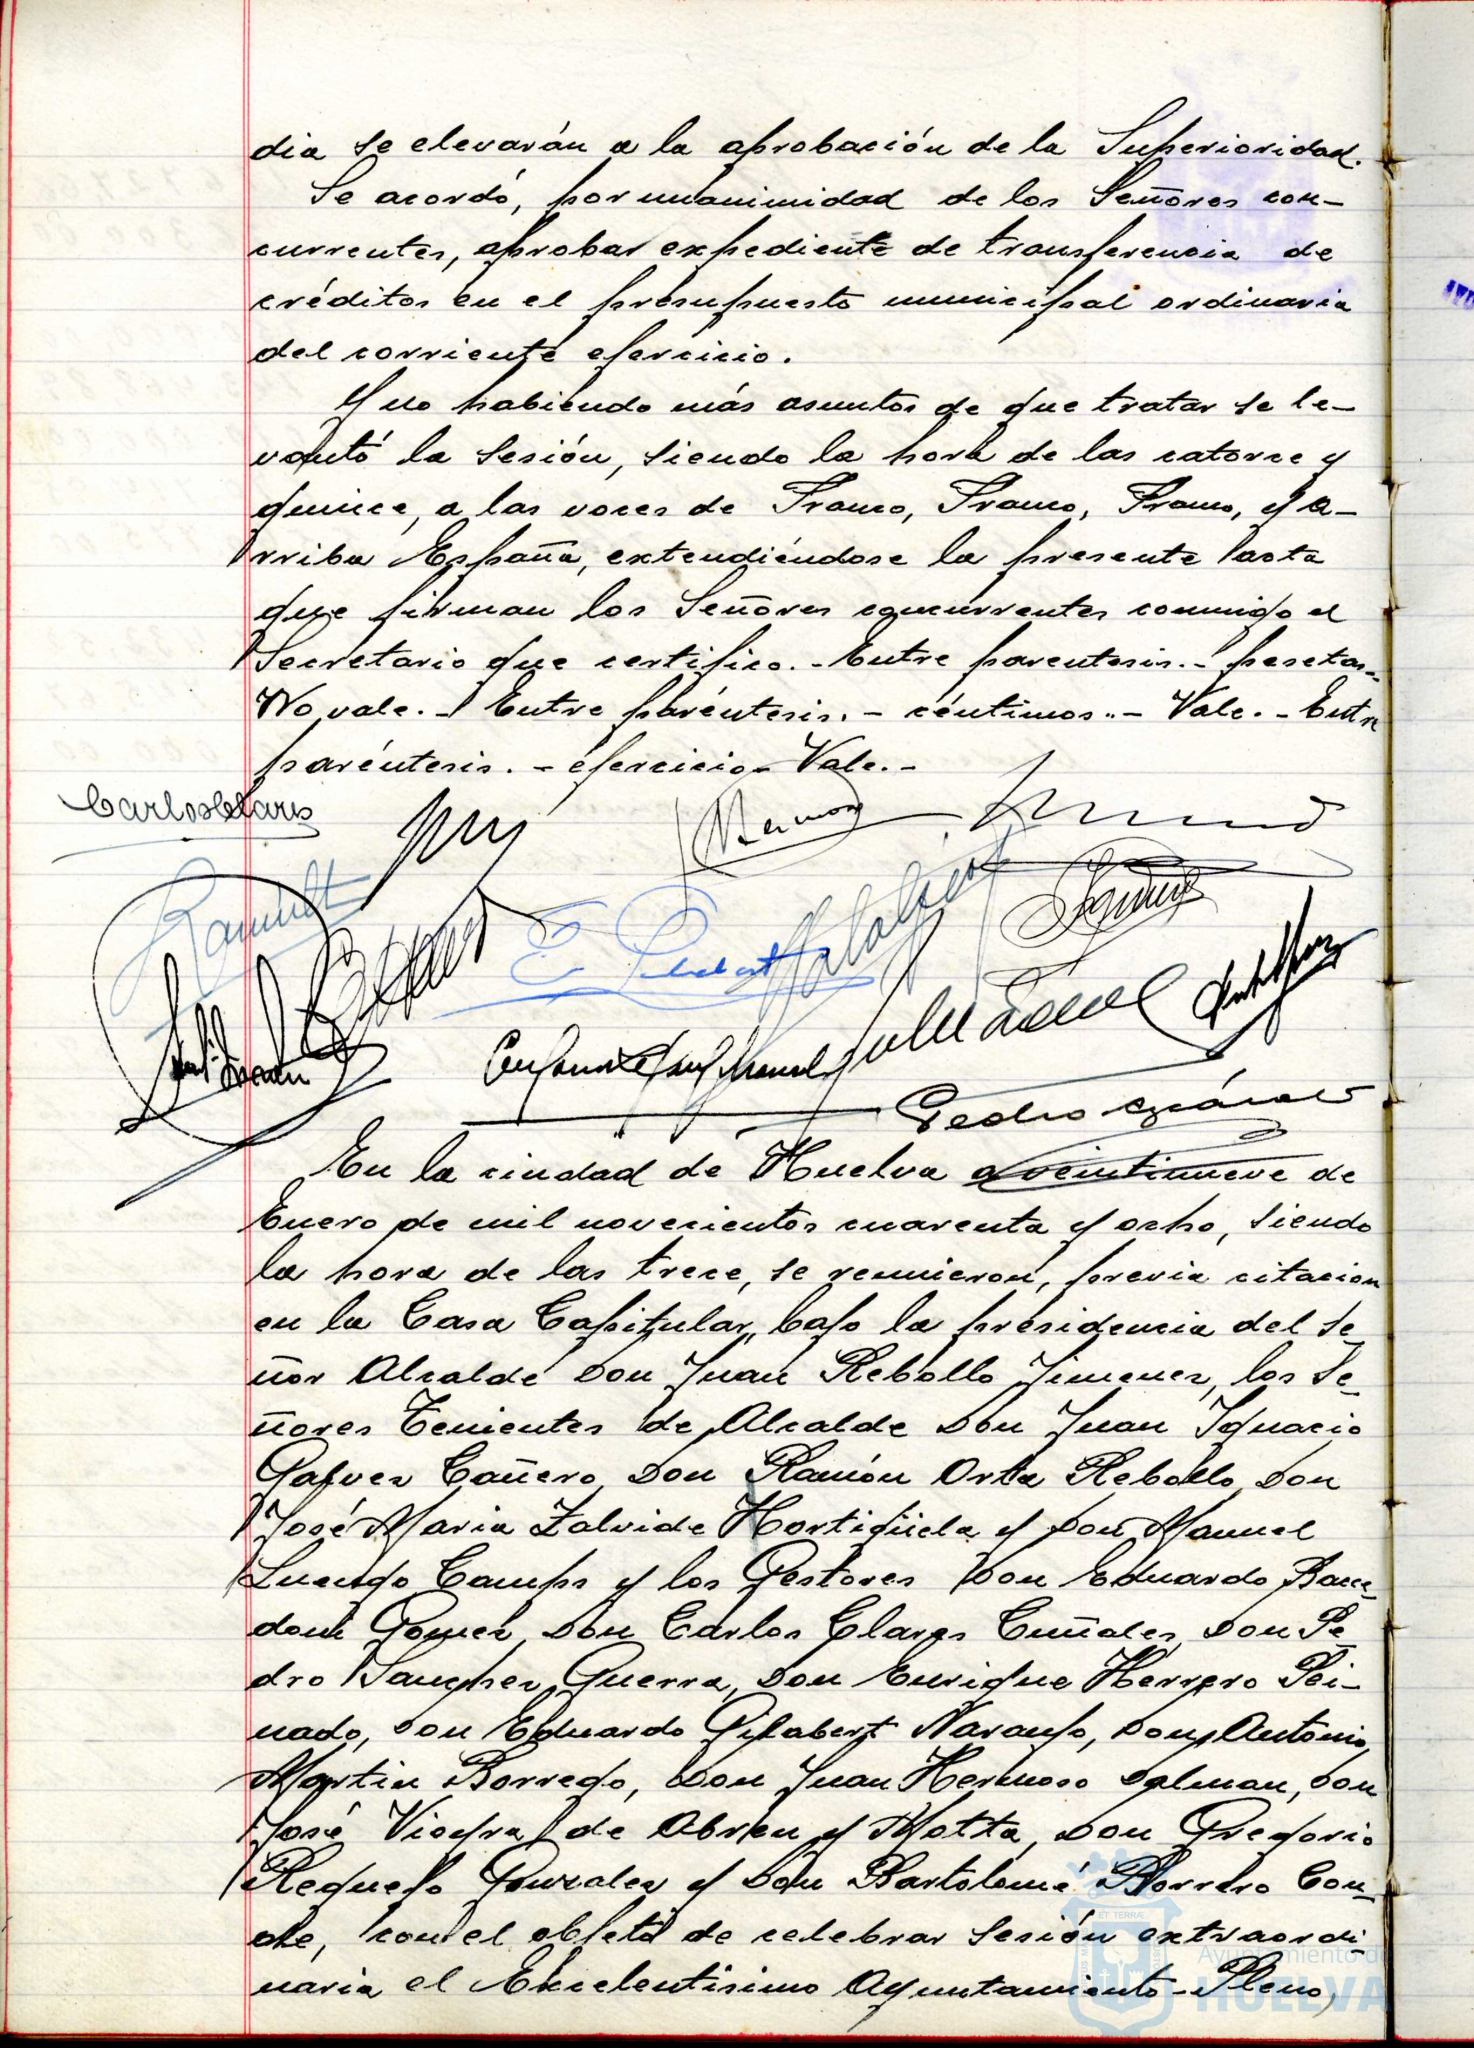 dia se elevarán a la aprobación de la Superioridad.
Se acordó, por unanimidad de los Señores con-
currentes, aprobar expediente de transferencia de
créditos en el presupuesto municipal ordinario
del corriente ejercicio.
Y no habiendo más asuntos de que tratar se le-
vantó la sesión, siendo la hora de las catorce y
quince, a las voces de Franco, Franco, Franco, y A-
rriba España, extendiéndose la presente acta
que firman los Señores concurrentes conmigo el
Secretario que certifico.- Entre parentesis.- pesetas-
No vale.- Entre paréntesis.- céntimos.- Vale.- Entre
paréntesis.- ejercicio- Vale.-
Carlos Clares
E. Gilabert
Pedro
En la ciudad de Huelva a veintinueve de
Enero de mil novecientos cuarenta y ocho, siendo
la hora de las trece, se reunieron, previa citacion
en la Casa Capitular, bajo la presidencia del Se-
ñor Alcalde Don Juan Rebollo Jimenez, los Se-
ñores Tenientes de Alcalde Don Juan Ignacio
Galvez Cañero, Don Ramón Orta Rebollo, Don
José Maria Zalvide Hortigüela y Don Manuel
Luengo Camps y los Gestores Don Eduardo
Gomez, Don Carlos Clares Cuñales, Don Pe-
dro Sanchez Guerra, Don Enrique Herrero Pei-
nado, Don Eduardo Gilabert Naranjo, Don Antonio
Martin Borrego, Don Juan Hermoso Dalman, Don
José Vieyra de Abreu y Motta, Don Gregorio
Requejo Gonzalez y Don Bartolomé Borrero Con-
de, con el objeto de celebrar sesión extraordi-
naria el Excelentisimo Ayuntamiento-Pleno,
ET TERRÆ
Ayuntamiento de
HUELVA